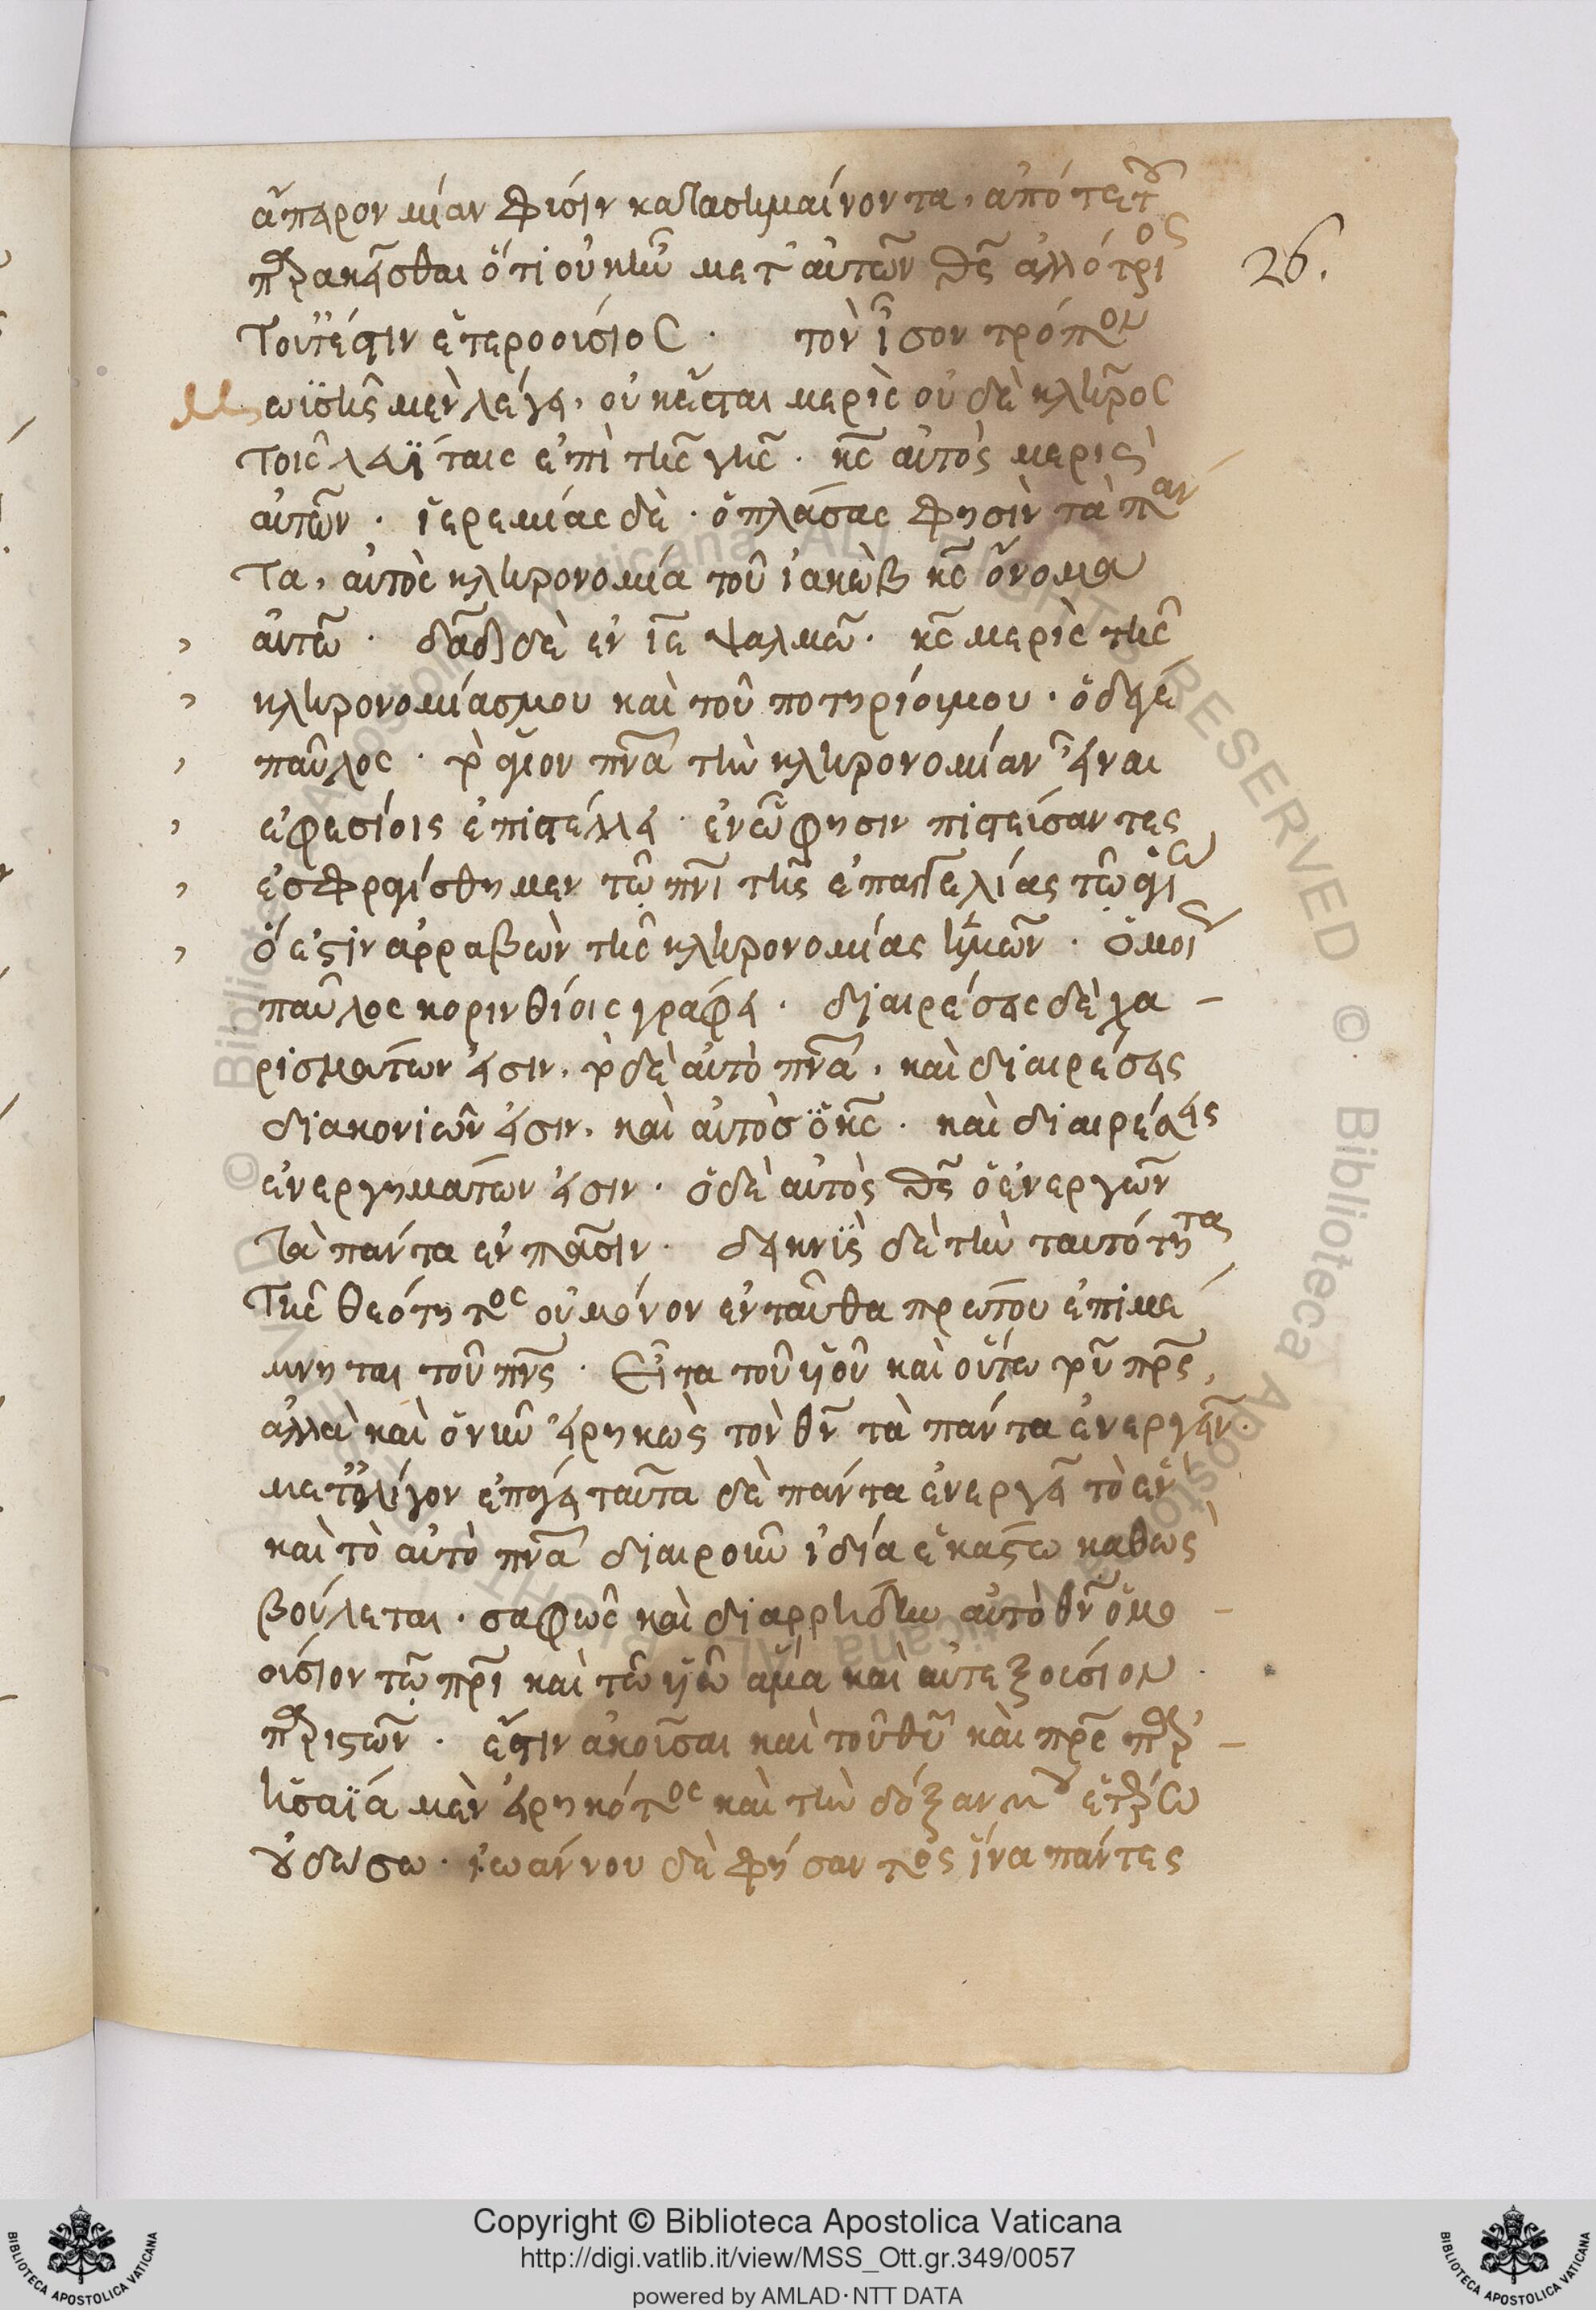 ἄπειρον μίαν φύσιν κατασημαίνοντα, ἀπό τε τοῦ
παρακεῖσθαι ὅτι οὐκ ἦν μετ' αὐτῶν θς ἀλλότριος
τουτέστιν ἑτεροούσιος · τὸν ἴσον τρόπον
Μωϋσῆς μὲν λέγει, οὐκ ἔσται μερὶς οὐδὲ κλῆρος
τοῖς λευΐταις ἐπὶ τῆς γῆς · κς αὐτὸς μερὶς
αὐτῶν · ἱερεμίας δὲ · ὁ πλάσας φησὶν τὰ πάν
τα, αὐτὸς κληρονομία τοῦ ἰακὼβ κς ὄνομα
αὐτῶ · δαδ δὲ ἐν ιε ψαλμῶ · κς μερὶς τῆς
κληρονομίας μου καὶ τοῦ ποτηρίου μου · ὁ δέ γε
παῦλος · τὸ ἅγιον πνα τὴν κληρονομίαν εἶναι
ἐφεσίοις ἐπιστέλλει · ἐν ὧ φησιν πιστεύσαντες
ἐσφραγίσθημεν τῶ πνι τῆς ἐπαγγελίας τῶ ἁγίω
ὅ ἐστιν ἀρραβὼν τῆς κληρονομίας ἡμῶν · ὅμοι
παῦλος κορινθίοις γράφει · διαιρέσεις δὲ χα -
ρισμάτων εἰσιν, τὸ δὲ αὐτὸ πνα, καὶ διαιρέσεις
διακονιῶν εἰσιν, καὶ αὐτὸς ὁ κς · καὶ διαιρέσεις
ἐνεργημάτων εἰσιν · ὁ δὲ αὐτὸς θς ὁ ἐνεργῶν
τὰ πάντα ἐν πᾶσιν · δεικνὺς δὲ τὴν ταυτότητα
τῆς θεότητος οὐ μόνον ἐνταῦθα πρώτου ἐπιμέ
μνηται τοῦ πνς · Εἶτα τοῦ υἱοῦ καὶ οὕτω τοῦ πρς,
ἀλλὰ καὶ ὃ νῦν εἰρηκὼς τὸν θν τὰ πάντα ἐνεργεῖν ·
μετ' ὀλίγον ἐπάγει ταῦτα δὲ πάντα ἐνεργεῖ τὸ ἓν
καὶ τὸ αὐτὸ πνα διαιροῦν ἰδία ἑκάστω καθὼς
βούλεται · σαφῶς καὶ διαρρήδην αὐτὸ θν ὁμο -
ούσιον τῶ πρι καὶ τῶ υἱῶ ἅμα καὶ αὐτεξούσιον
παριστῶν · ἔστιν ἀκοῦσαι καὶ τοῦ θυ καὶ πρς παρ' -
ἡσαΐα μὲν εἰρηκότος καὶ τὴν δόξαν μου ἑτέρω
οὐ δώσω · ἰωάννου δὲ φήσαντος ἵνα πάντες
26.
Copyright © Biblioteca Apostolica Vaticana
http://digi.vatlib.it/view/MSS_Ott.gr.349/0057
powered by AMLAD·NTT DATA